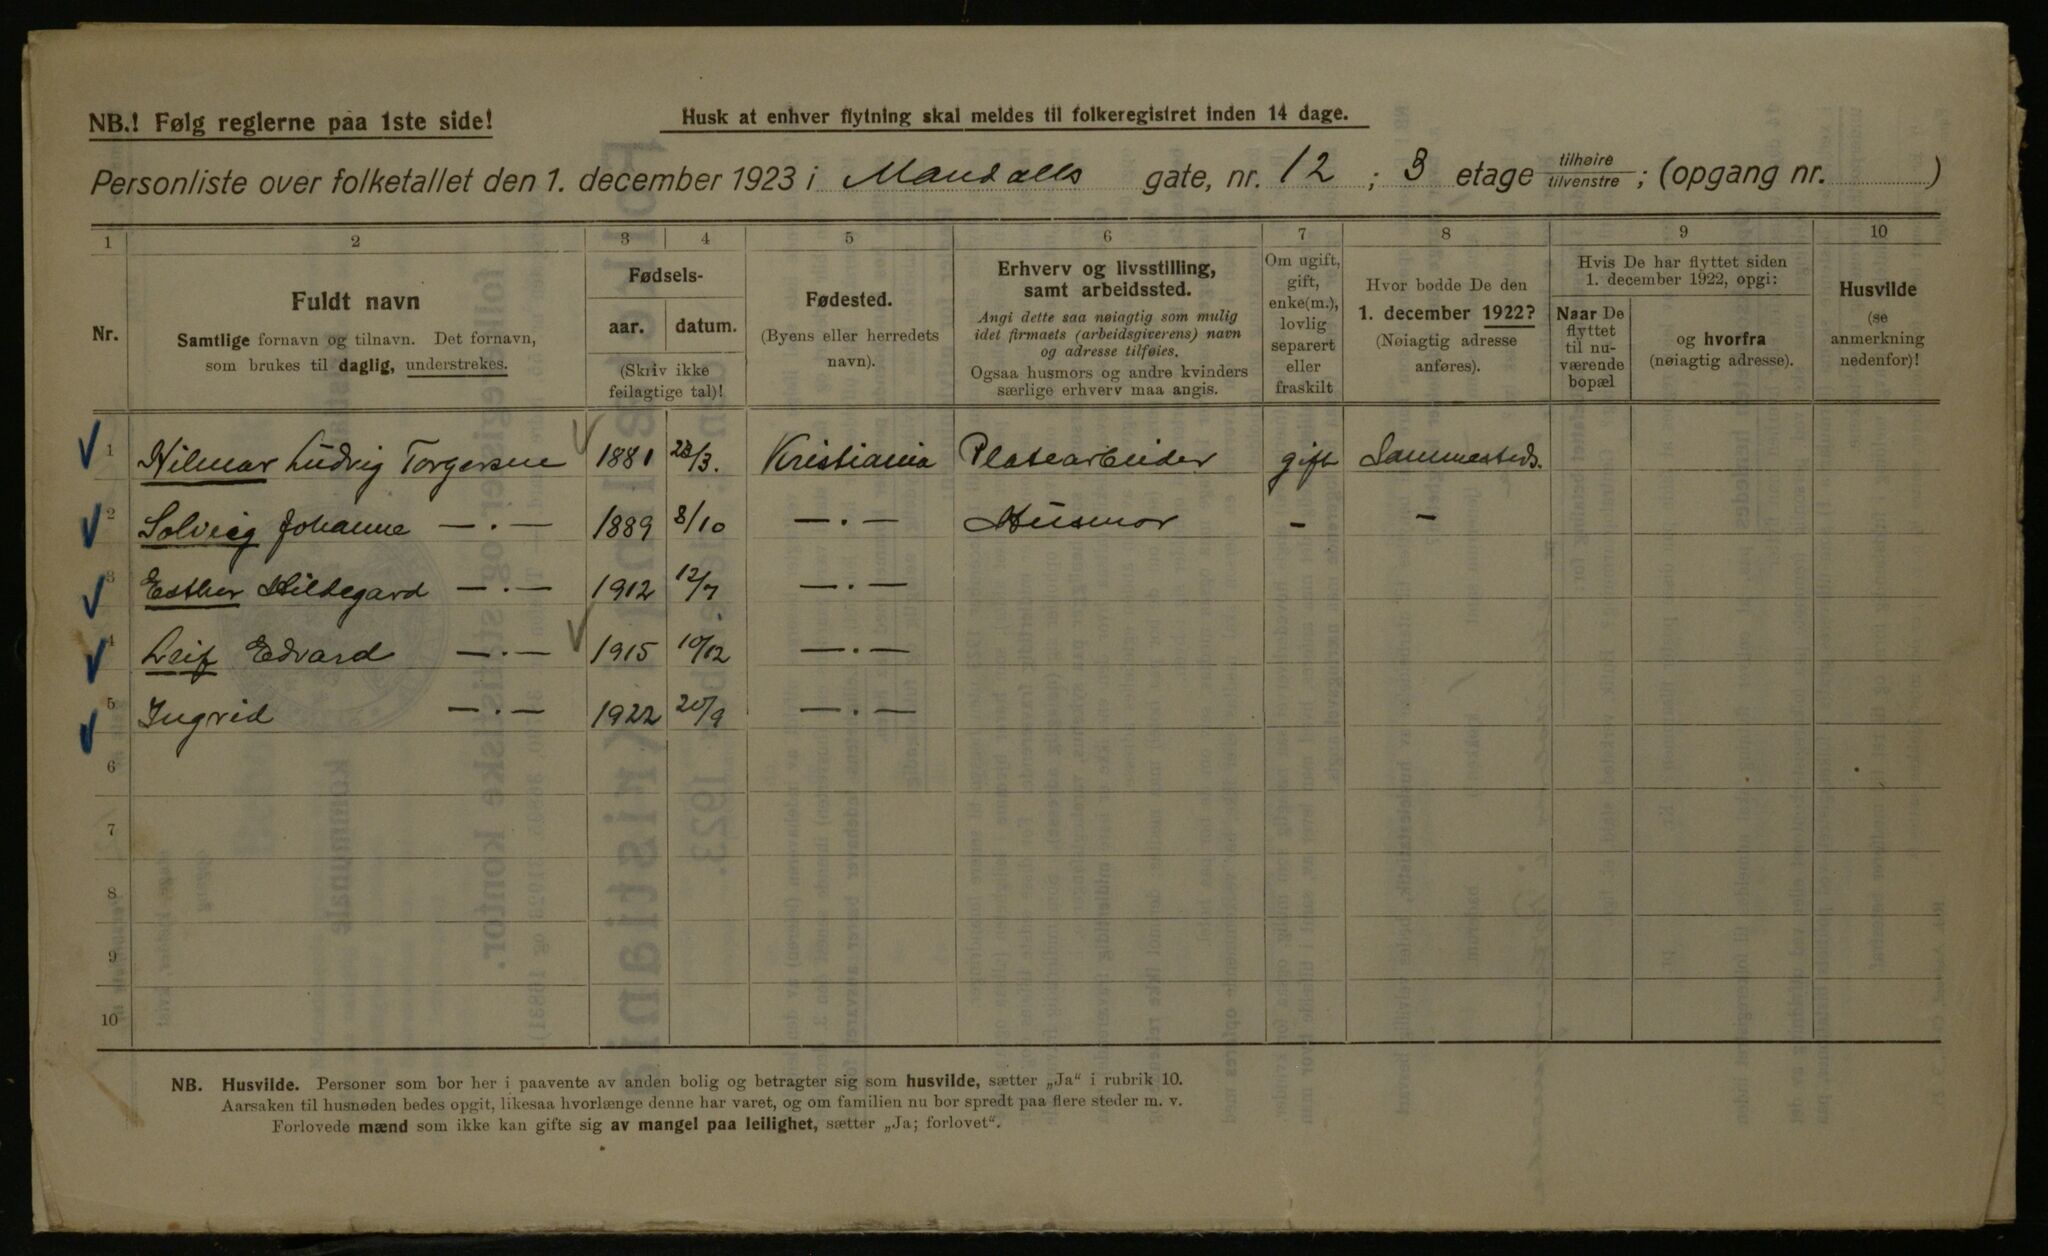 NB.! Følg reglerne paa 1ste side!
Husk at enhver flytning skal meldes til folkeregistret inden 14 dage.
Personliste over folketallet den 1. december 1923 i Mandalls gate, nr. 12 ; 3 etage tilhøire tilvenstre ; (opgang nr. )
1 2 3 4 5 6 7 8 9 10
Nr.
Fuldt navn
Samtlige fornavn og tilnavn. Det fornavn,
som brukes til daglig, understrekes.
Fødsels-
aar. datum.
(Skriv ikke
feilagtige tal)!
Fødested.
(Byens eller herredets
navn).
Erhverv og livsstilling,
samt arbeidssted.
Angi dette saa nøiagtig som mulig
idet firmaets (arbeidsgiverens) navn
og adresse tilføies.
Ogsaa husmors og andre kvinders
særlige erhverv maa angis.
Om ugift,
gift,
enke(m.),
lovlig
separert
eller
fraskilt
Hvor bodde De den
1. december 1922?
(Nøiagtig adresse
anføres).
Hvis De har flyttet siden
1. december 1922, opgi:
Naar De
flyttet
til nu-
værende
bopæl
og hvorfra
(nøiagtig adresse).
Husvilde
(se
anmerkning
nedenfor)!
1 Hilmar Ludvig Torgersen 1881 23/3. Kristiania Platearbeider gift Sammesteds.
2 Solveig Johanne — . — 1889 8/10 — . — Husmor - -
3 Esther Hildegard — . — 1912 12/7 — . —
4 Leif Edvard — . — 1915 10/12 — . —
5 Ingrid — . — 1922 20/9 — . —
6
7
8
9
10
NB. Husvilde. Personer som bor her i paavente av anden bolig og betragter sig som husvilde, sætter „Ja“ i rubrik 10.
Aarsaken til husnøden bedes opgit, likesaa hvorlænge denne har varet, og om familien nu bor spredt paa flere steder m. v.
Forlovede mænd som ikke kan gifte sig av mangel paa leilighet, sætter „Ja; forlovet“.